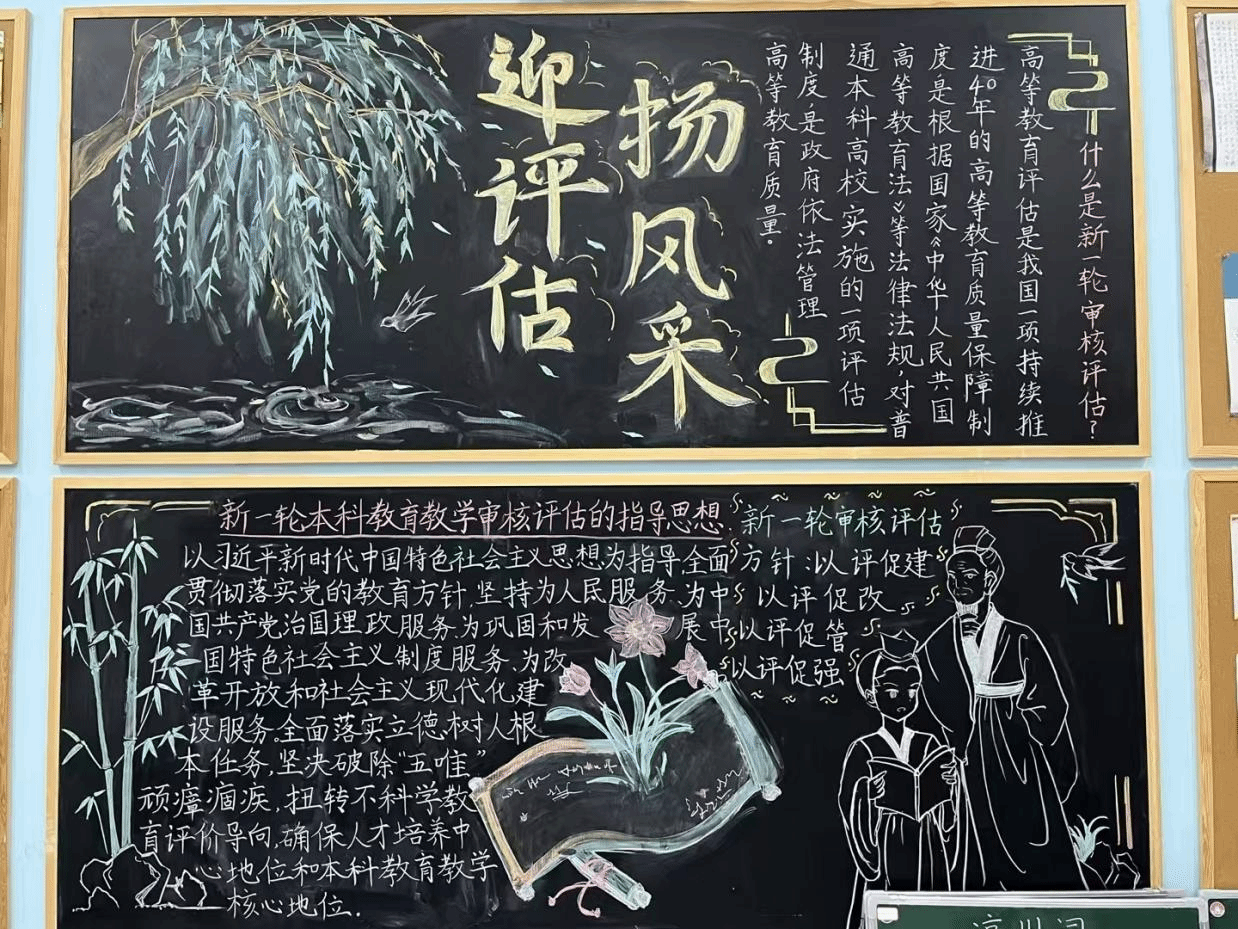 迎评估
扬风采
什么是新一轮审核评估?
高等教育评估是我国一项持续推
进40年的高等教育质量保障制
度是根据国家《中华人民共国
高等教育法》等法律法规,对普
通本科高校实施的一项评估
制度,是政府依法管理
高等教育质量。
新一轮本科教育教学审核评估的指导思想
以习近平新时代中国特色社会主义思想为指导,全面
贯彻落实党的教育方针,坚持为人民服务,为中
国共产党治国理政服务,为巩固和发展中
国特色社会主义制度服务,为改
革开放和社会主义现代化建
设服务。全面落实立德树人根
本任务,坚决破除“五唯”
顽瘴痼疾,扭转不科学教
育评价导向,确保人才培养中
心地位和本科教育教学
核心地位.
新一轮审核评估
方针:以评促建
以评促改
以评促管
以评促强
凉州词